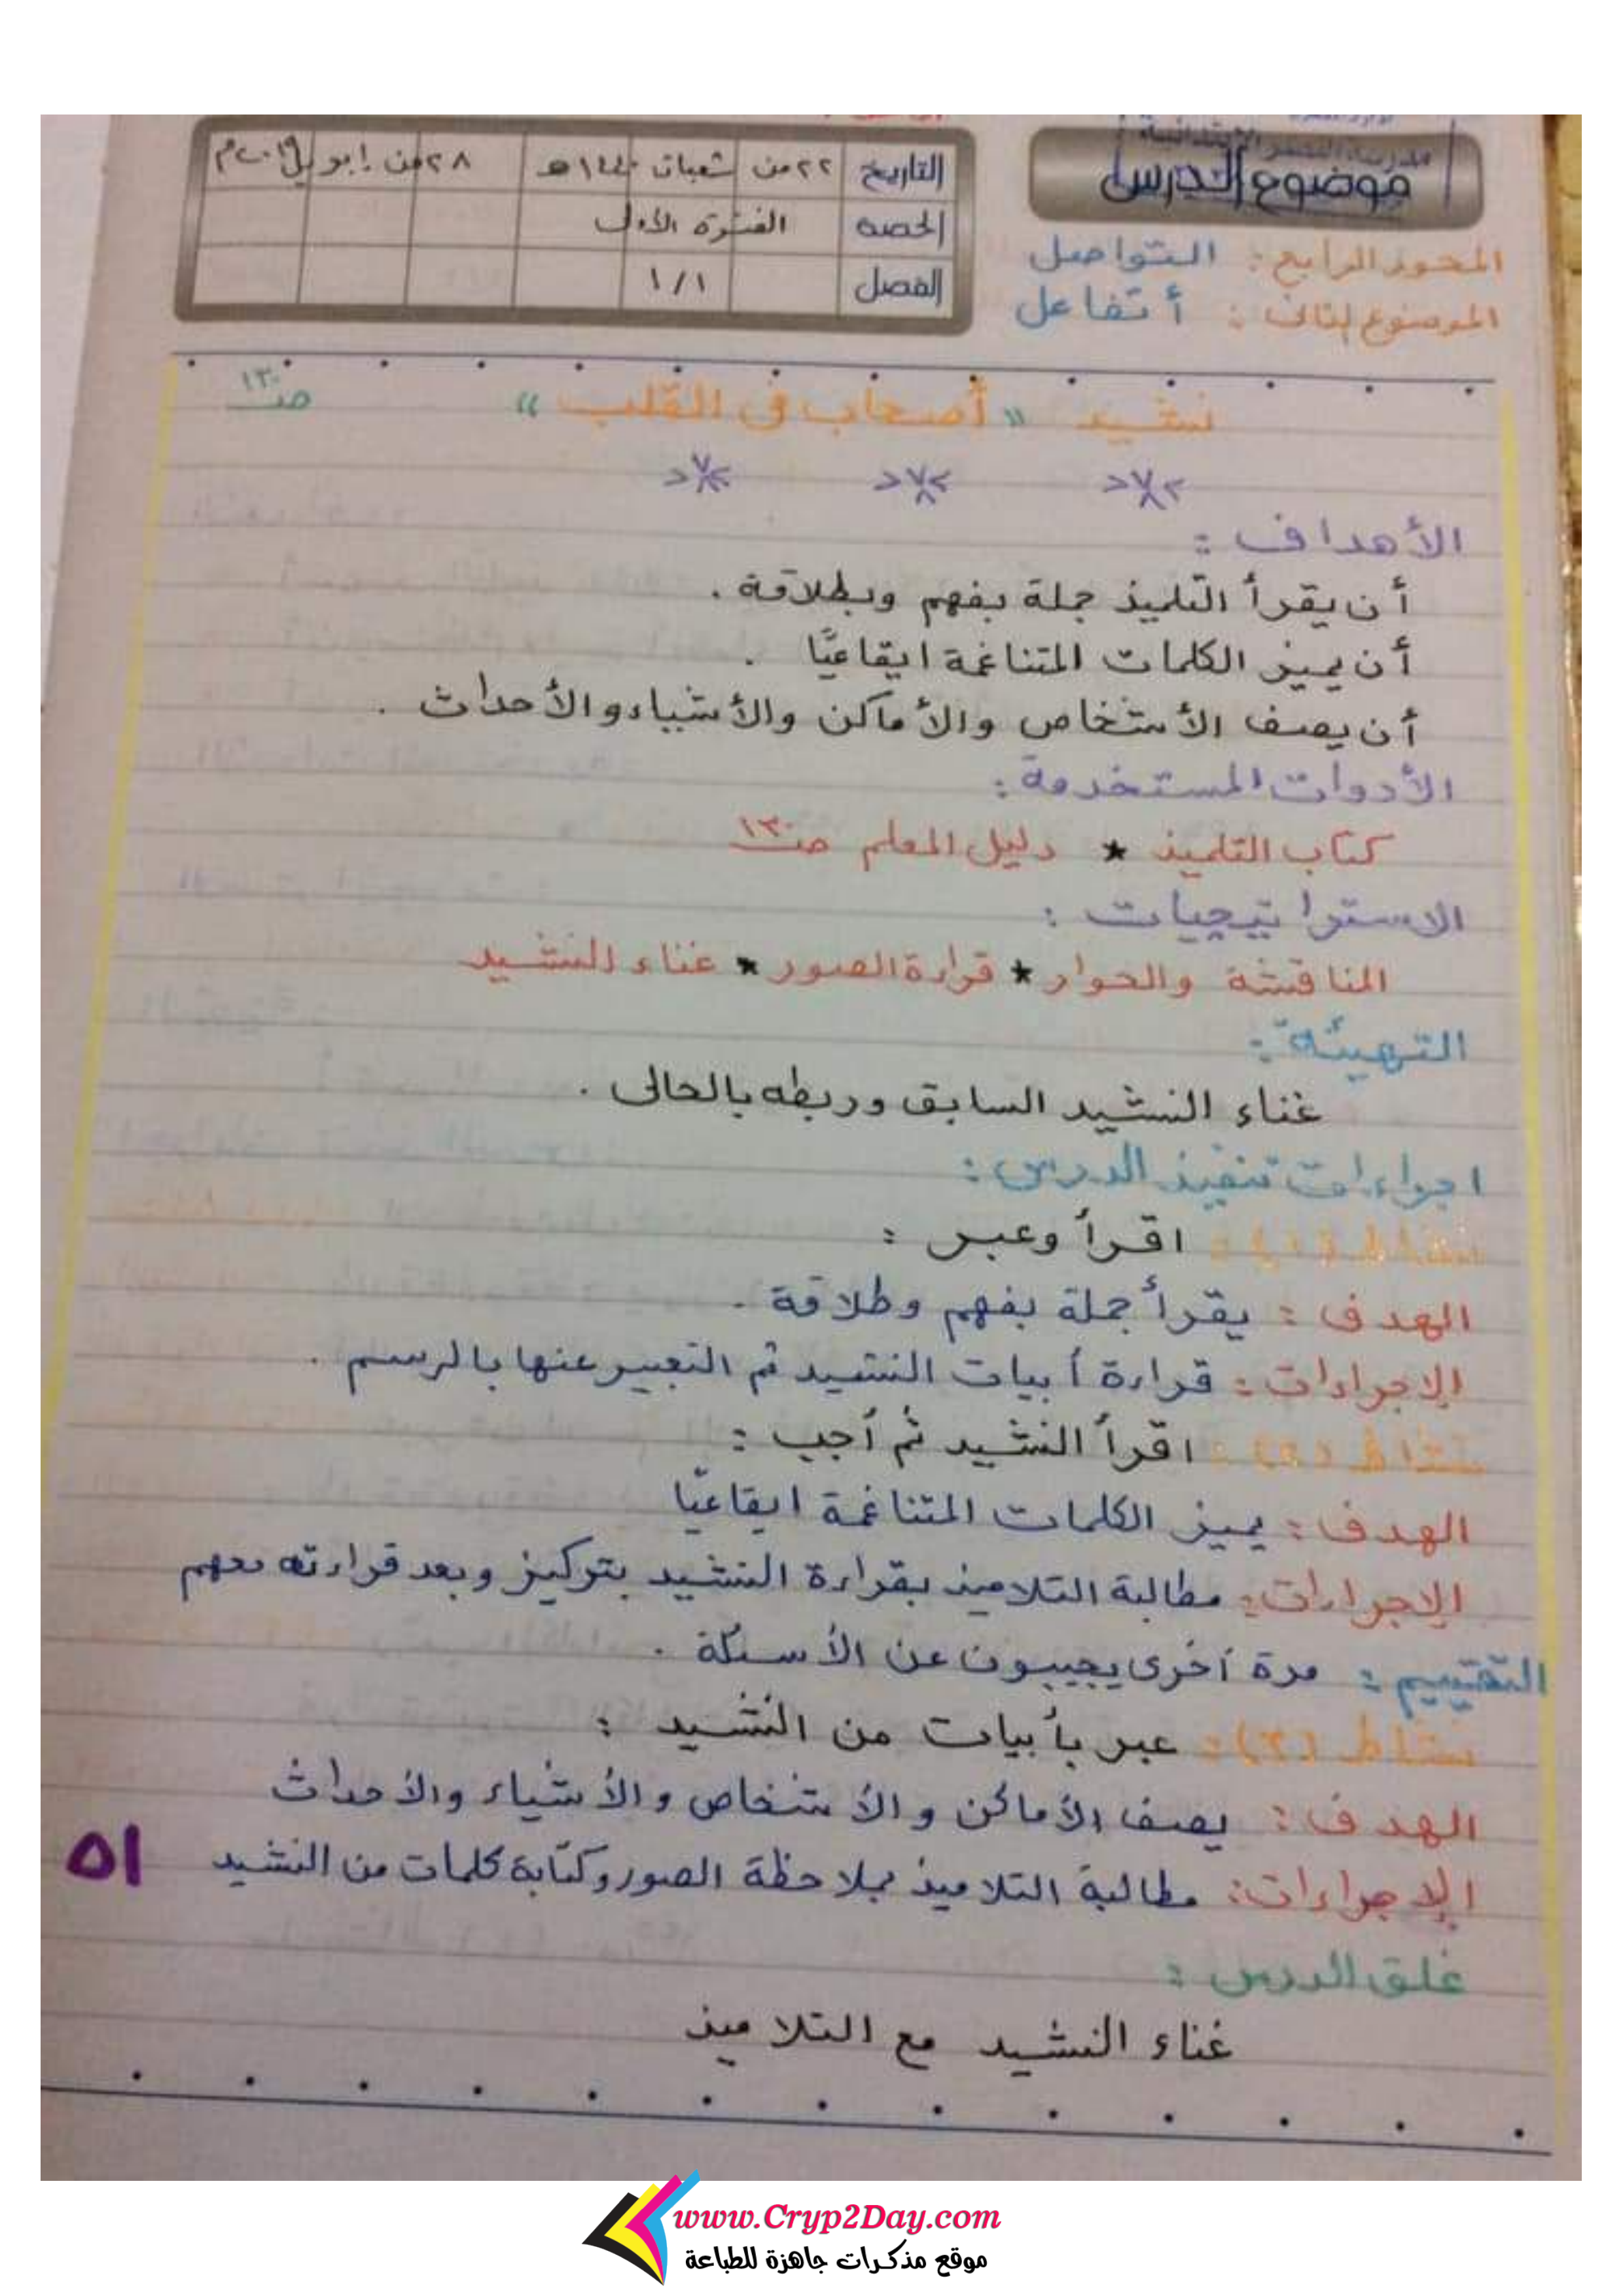 مدرسة النصر الابتدائية
موضوع الدرس
التاريخ ٢٢ من شعبان ١٤٤٠هـ ٢٨ من ابريل ٢٠١٩م
الحصة الفترة الأولى
الفصل ١/١
المحور الرابع : التواصل
الموضوع الثانى : أتفاعل
نشيد « أصحاب فى القلب » صـ١٣٠
الأهداف :
أن يقرأ التلميذ جملة بفهم وبطلاقة .
أن يميز الكلمات المتناغمة ايقاعيًّا .
أن يصف الأشخاص والأماكن والأشياء والأحداث .
الأدوات المستخدمة :
كتاب التلميذ * دليل المعلم صـ١٣٠
الاستراتيجيات :
المناقشة والحوار * قراءة الصور * غناء النشيد
التهيئة :
غناء النشيد السابق وربطه بالحالى .
اجراءات تنفيذ الدرس :
نشاط (١) : اقرأ وعبر :
الهدف : يقرأ جملة بفهم وطلاقة .
الإجراءات : قراءة أبيات النشيد ثم التعبير عنها بالرسم .
نشاط (٢) : اقرأ النشيد ثم أجب :
الهدف : يميز الكلمات المتناغمة ايقاعيًّا
الإجراءات : مطالبة التلاميذ بقراءة النشيد بتركيز وبعد قراءته معهم
التقييم : مرة أخرى يجيبون عن الأسئلة .
نشاط (٣) : عبر بأبيات من النشيد :
الهدف : يصف الأماكن والأشخاص والأشياء والأحداث
الإجراءات : مطالبة التلاميذ بملاحظة الصور وكتابة كلمات من النشيد
٥١
غلق الدرس :
غناء النشيد مع التلاميذ
www.Cryp2Day.com
موقع مذكرات جاهزة للطباعة